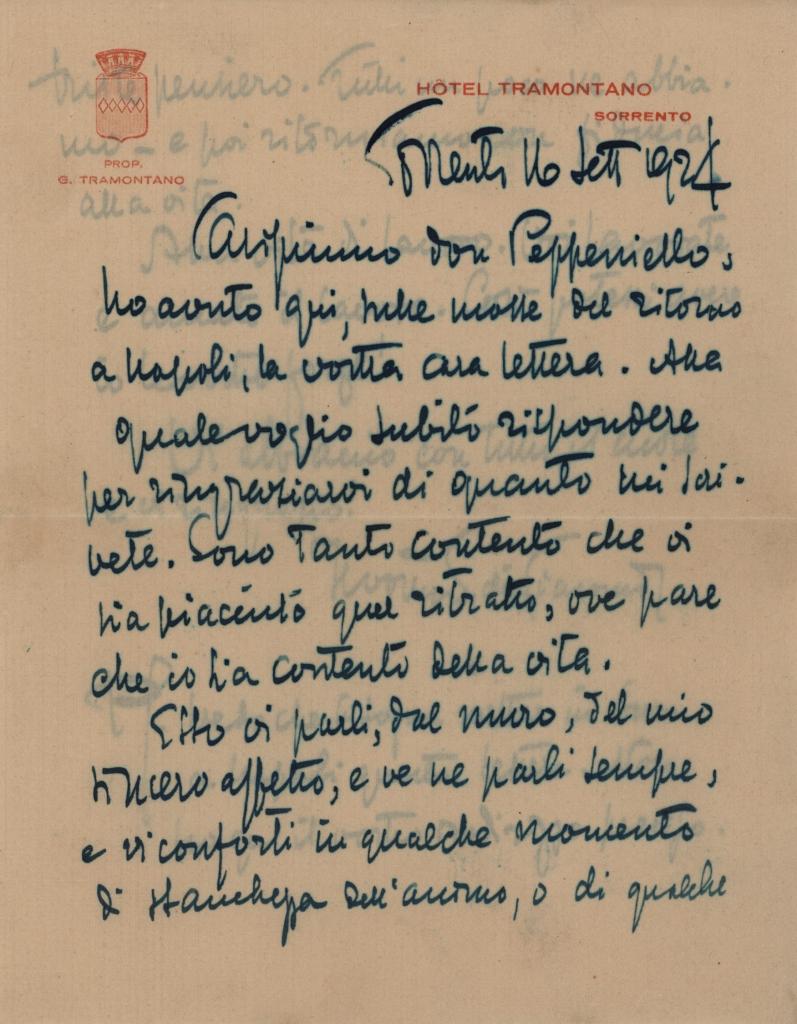 HÔTEL TRAMONTANO
SORRENTO
PROP.
G. TRAMONTANO
Sorrento 10 Sett 1924
Carissimo don Peppeniello,
ho avuto qui, sulle mosse del ritorno
a Napoli, la vostra cara lettera. Alla
quale voglio subito rispondere
per ringraziarvi di quanto mi scri-
vete. Sono tanto contento che vi
sia piaciuto quel ritratto, ove pare
che io sia contento della vita.
Esso vi parli, dal muro, del mio
sincero affetto, e ve ne parli sempre,
e vi conforti in qualche momento
di stanchezza dell'animo, o di qualche